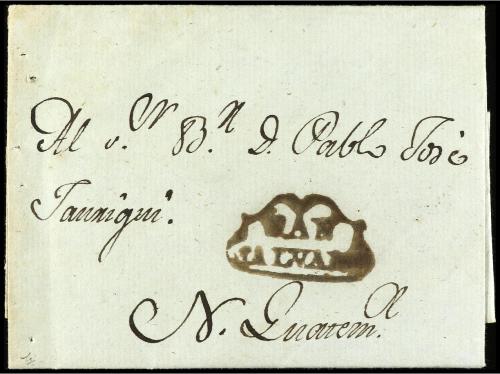 Al s.ʳ B.ʳ D. Pablo José
Jauregui.
SAN
SALVADOR
N. Guatem.ª